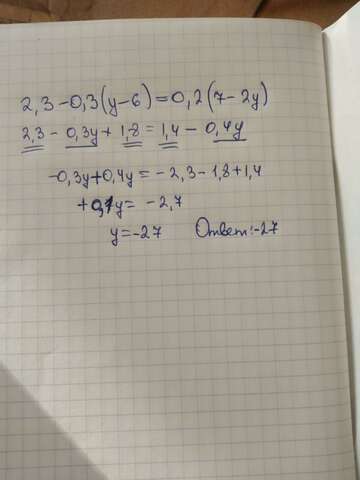 2,3-0,3(y-6)=0,2(7-2y)
2,3-0,3y+1,8=1,4-0,4y
-0,3y+0,4y=-2,3-1,8+1,4
+0,1y=-2,7
y=-27 Ответ:-27